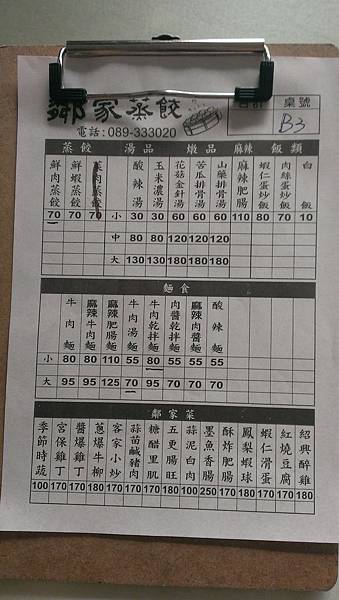 鄰家蒸餃
電話:089-333020
合計 桌號
B3
蒸餃 湯品 燉品 麻辣 飯類
鮮肉蒸餃 鮮蝦蒸餃 酸辣湯 玉米濃湯 花菇金針湯 苦瓜排骨湯 山藥排骨湯 麻辣肥腸 蝦仁蛋炒飯 肉絲蛋炒飯 白飯
70 70 70 小 30 30 60 60 60 110 80 70 10
中 80 80 120 120 120
大 130 130 180 180 180
麵食
牛肉麵 麻辣牛肉麵 麻辣肥腸麵 牛肉湯麵 牛肉乾拌麵 肉醬乾拌麵 麻辣肉醬麵 酸辣麵
小 80 80 110 55 80 55 55 55
大 95 95 125 70 95 70 70 70
鄰家菜
季節時蔬 宮保雞丁 醬爆雞丁 蔥爆牛柳 客家小炒 蒜苗鹹豬肉 糖醋里肌 五更腸旺 蒜泥白肉 墨魚香腸 酥炸肥腸 鳳梨蝦球 蝦仁滑蛋 紅燒豆腐 紹興醉雞
100 170 170 180 170 170 170 180 100 250 170 180 170 170 180